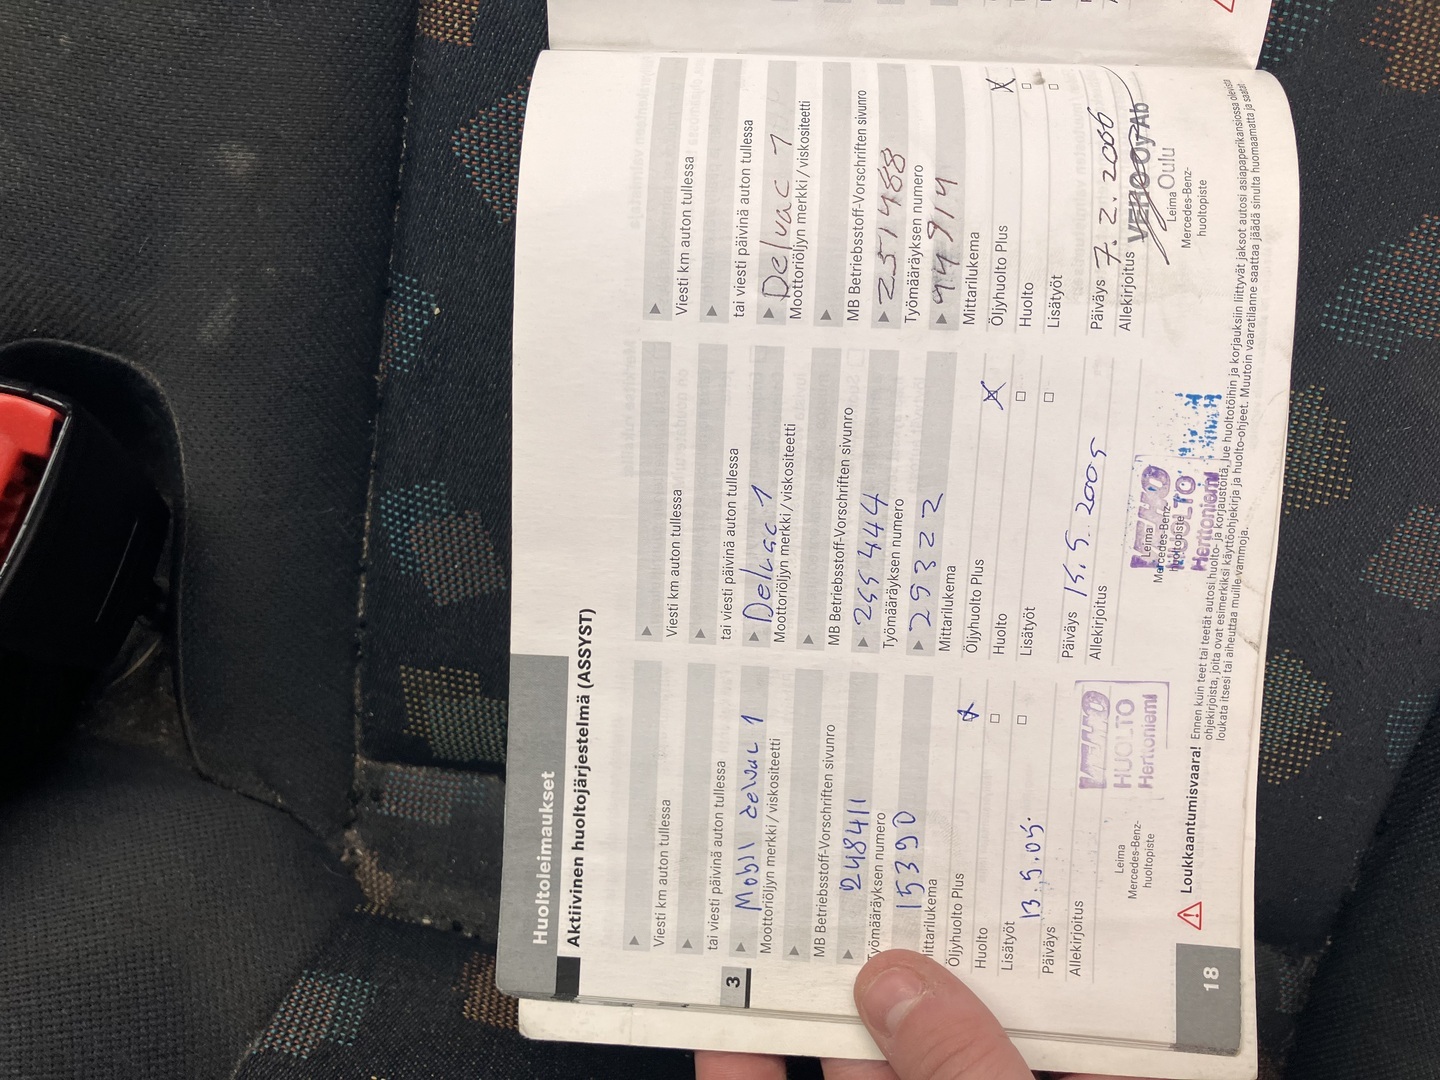 Huoltoleimaukset
Aktiivinen huoltojärjestelmä (ASSYST)
3
Viesti km auton tullessa
tai viesti päivinä auton tullessa
Mobil Delvac 1
Moottoriöljyn merkki/viskositeetti
MB Betriebsstoff-Vorschriften sivunro
248411
Työmääräyksen numero
15390
Mittarilukema
Öljyhuolto Plus
Huolto
Lisätyöt
13.5.05.
Päiväys
Allekirjoitus
VEHO
HUOLTO
Herttoniemi
Leima
Mercedes-Benz-
huoltopiste
Viesti km auton tullessa
tai viesti päivinä auton tullessa
Delvac 1
Moottoriöljyn merkki/viskositeetti
MB Betriebsstoff-Vorschriften sivunro
255444
Työmääräyksen numero
29322
Mittarilukema
Öljyhuolto Plus
Huolto
Lisätyöt
Päiväys 15.9.2005
Allekirjoitus
VEHO
HUOLTO
Herttoniemi
Leima
Mercedes-Benz-
huoltopiste
Viesti km auton tullessa
tai viesti päivinä auton tullessa
Delvac 1
Moottoriöljyn merkki/viskositeetti
MB Betriebsstoff-Vorschriften sivunro
251488
Työmääräyksen numero
44914
Mittarilukema
Öljyhuolto Plus
Huolto
Lisätyöt
Päiväys 7.2.2006
Allekirjoitus
VEHO Oy Ab
Oulu
Leima
Mercedes-Benz-
huoltopiste
Loukkaantumisvaara! Ennen kuin teet tai teetät autosi huolto- ja korjaustöitä, lue huoltotöihin ja korjauksiin liittyvät jaksot autosi asiapaperikansiossa olevista
ohjekirjoista, joita ovat esimerkiksi käyttöohjekirja ja huolto-ohjeet. Muutoin vaaratilanne saattaa jäädä sinulta huomaamatta ja saatat
loukata itsesi tai aiheuttaa muille vammoja.
18